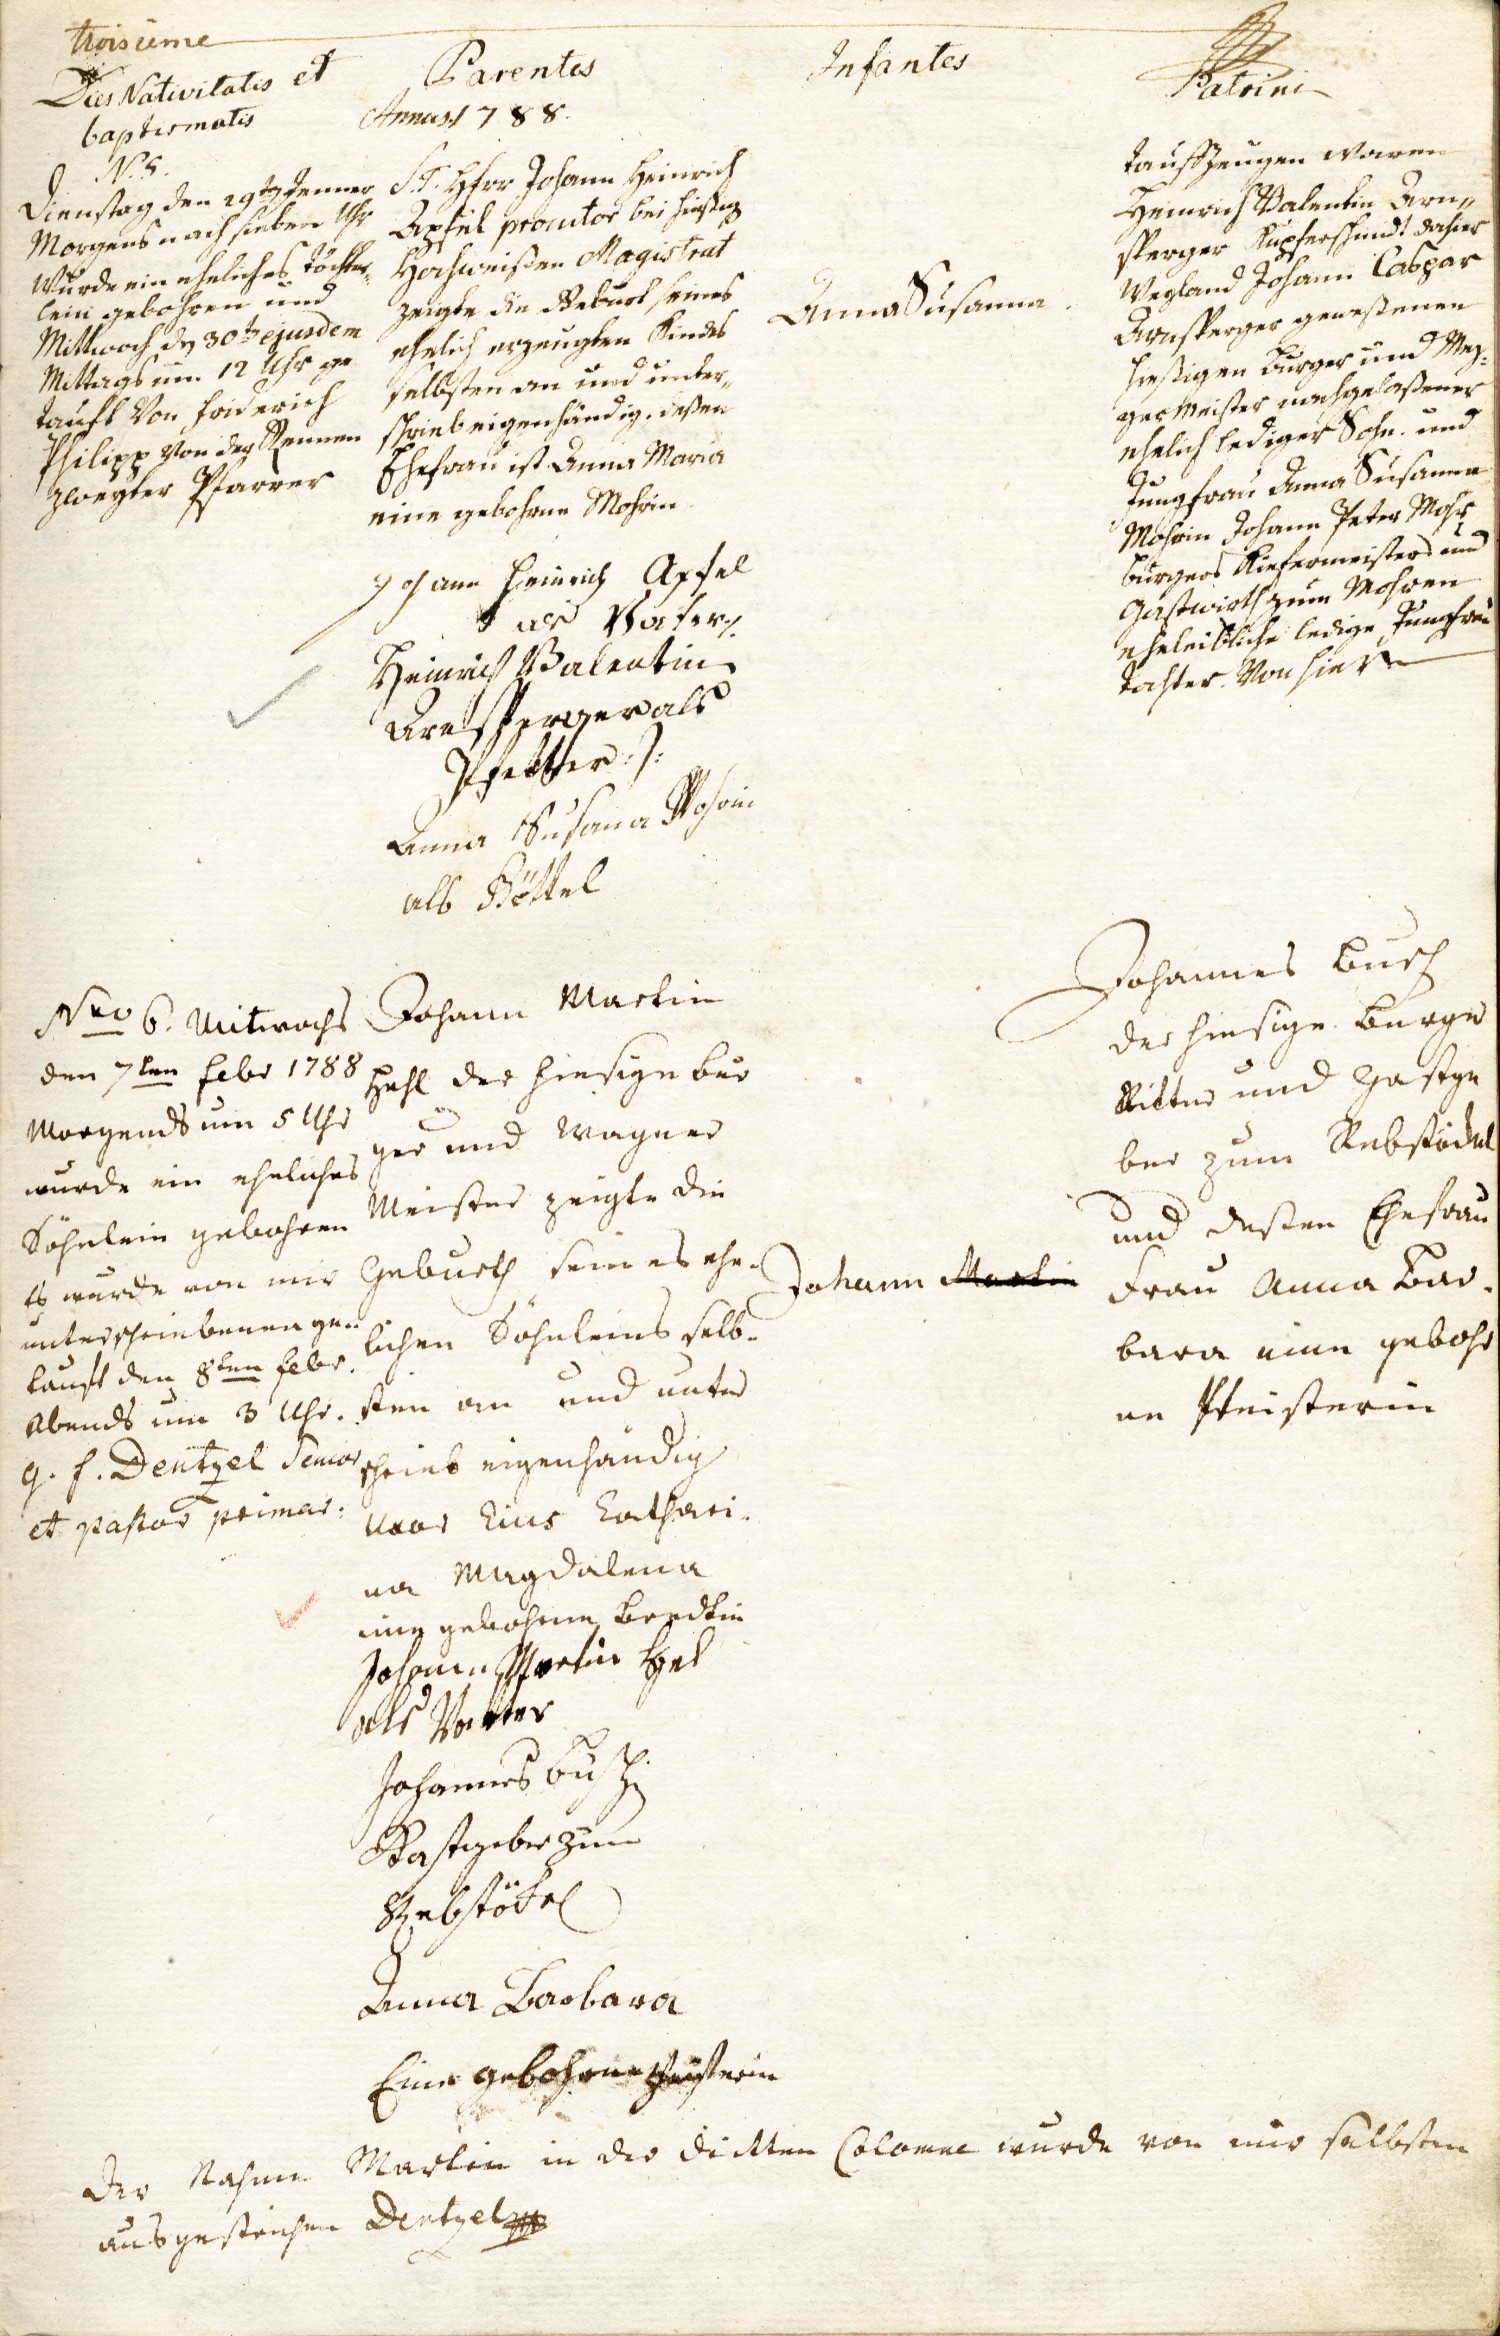 troisieme
Dies Nativitatis et
baptismatis
Parentes
Annus 1788.
Infantes
Patrini
N. 5.
Dienstag den 29ten Jenner
Morgens nach sieben Uhr
Wurde ein eheliches Töchter„
lein gebohren und
Mittwoch den 30ten ejusdem
Mittags um 12 Uhr ge
tauft Von Friderich
Philipp Von der Rennen
zweyter Pfarrer
S. T. Herr Johann Heinrich
Apfel procutor bei hießig
Hochweißen Magistrat
zeigte die Geburt seines
ehelich erzeugten Kindes
selbsten an und unter„
schrieb eigenhändig. deßen
Ehefrau ist Anna Maria
eine gebohrne Mohrin
Johann Heinrich Apfel
als Vater
Heinrich Valentin
Arnsperger als
Pfetter
Anna Susana Mohrin
als Göttel
Anna Susanna
Taufzeugen waren
Heinrich Valentin Arn„
sperger Kupferschmidt dahier
Weyland Johann Caspar
Arnsperger geweßenen
hießigen Burger und Mez„
germeister nachgelaßener
ehelich lediger Sohn. und
Jungfrau Anna Susanna
Mohrin Johann Peter Mohr
burgers Kiefermeisters und
Gastwirth zum Mohren
eheleibliche ledige Jungfrau
Tochter. Von hier
Nro 6. Mitwochs
den 7ten febr 1788
Morgends um 5 Uhr
wurde ein eheliches
Söhnlein gebohren
Es wurde von mir
unterschriebenen ge„
tauft den 8ten febr.
Abends um 3 Uhr.
G. F. Dentzel Senior
et pastor primar:
Johann Martin
Hehl der hiesige bur
ger und Wagner
Meister zeigte die
Geburth seines ehe„
lichen Söhnleins selb„
sten an und unter
schrieb eigenhändig
Uxor Eius Cathari„
na Magdalena
eine gebohrne Bredtin
Johann Martin Hel
als Vatter
Johannes Busch
Gastgeber zum
Rebstökel
Anna Barbara
Eine gebohrne Pfeisterin
Johann Martin
Johannes Busch
der hiesige Burger
Ritter und Gastge
ber zum Rebstöckel
und dessen Ehefrau
Frau Anna Bar„
bara eine gebohr
ne Pfeisterin
Der Nahme Martin in der dritten Colonne wurde von mir selbsten
ausgestrichen Dentzel